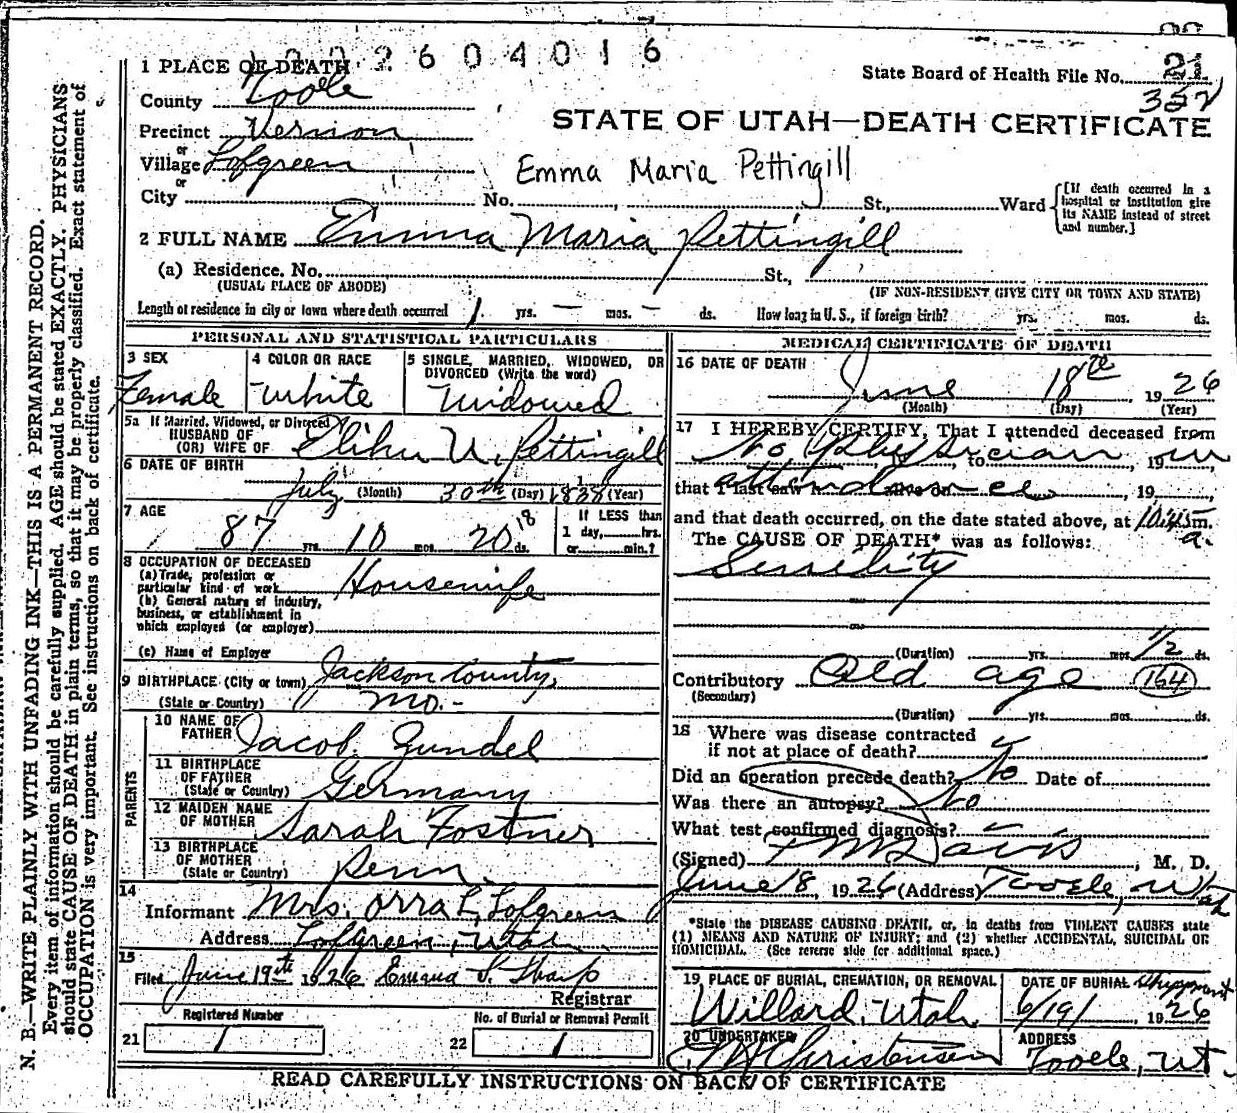 2604016
1 PLACE OF DEATH
County Tooele
Precinct Vernon
or
Village Lofgreen
or
City No. St., Ward
[If death occurred in a hospital or institution give its NAME instead of street and number.]
State Board of Health File No. 21
352
STATE OF UTAH—DEATH CERTIFICATE
Emma Maria Pettingill
2 FULL NAME Emma Maria Pettingill
(a) Residence. No. St.,
(USUAL PLACE OF ABODE) (IF NON-RESIDENT GIVE CITY OR TOWN AND STATE)
Length of residence in city or town where death occurred 1 yrs. — mos. — ds. How long in U. S., if foreign birth? yrs. mos. ds.
PERSONAL AND STATISTICAL PARTICULARS
3 SEX
Female
4 COLOR OR RACE
White
5 SINGLE, MARRIED, WIDOWED, OR DIVORCED (Write the word)
Widowed
5a If Married, Widowed, or Divorced
HUSBAND OF
(OR) WIFE OF Elihu U. Pettingill
6 DATE OF BIRTH
July (Month) 30th (Day) 1838 (Year)
7 AGE
87 yrs. 10 mos. 20 18 ds.
If LESS than 1 day, hrs. or min.?
8 OCCUPATION OF DECEASED
(a) Trade, profession or particular kind of work Housewife
(b) General nature of industry, business, or establishment in which employed (or employer)
(c) Name of Employer
9 BIRTHPLACE (City or town) Jackson County,
(State or Country) Mo.-
PARENTS
10 NAME OF FATHER Jacob Gundel
11 BIRTHPLACE OF FATHER (State or Country) Germany
12 MAIDEN NAME OF MOTHER Sarah Fostner
13 BIRTHPLACE OF MOTHER (State or Country) Penn.
14
Informant Mrs. Orra L. Lofgreen
Address Lofgreen, Utah
15
Filed June 19th 1926 Emma S. Sharp
Registrar
Registered Number
21 1
No. of Burial or Removal Permit
22 1
MEDICAL CERTIFICATE OF DEATH
16 DATE OF DEATH
June 18th 1926
(Month) (Day) (Year)
17 I HEREBY CERTIFY, That I attended deceased from
No Physician to , 19 in
that I last saw h alive on attendance , 19 ,
and that death occurred, on the date stated above, at 10:45 m.
a.
The CAUSE OF DEATH* was as follows:
Senselity
(Duration) yrs. mos. 1/2 ds.
Contributory Old age (164)
(Secondary)
(Duration) yrs. mos. ds.
18 Where was disease contracted
if not at place of death?
Did an operation precede death? No Date of
Was there an autopsy? No
What test confirmed diagnosis?
(Signed) F M Davis, M. D.
June 18, 1926 (Address) Tooele, Utah
*State the DISEASE CAUSING DEATH, or, in deaths from VIOLENT CAUSES state
(1) MEANS AND NATURE OF INJURY; and (2) whether ACCIDENTAL, SUICIDAL OR
HOMICIDAL. (See reverse side for additional space.)
19 PLACE OF BURIAL, CREMATION, OR REMOVAL
Willard, Utah
DATE OF BURIAL Shippment
6/19/, 1926
20 UNDERTAKER
Christensen
ADDRESS
Tooele, Ut.
READ CAREFULLY INSTRUCTIONS ON BACK OF CERTIFICATE
N. B.—WRITE PLAINLY WITH UNFADING INK—THIS IS A PERMANENT RECORD.
Every item of information should be carefully supplied. AGE should be stated EXACTLY. PHYSICIANS
should state CAUSE OF DEATH in plain terms, so that it may be properly classified. Exact statement of
OCCUPATION is very important. See instructions on back of certificate.